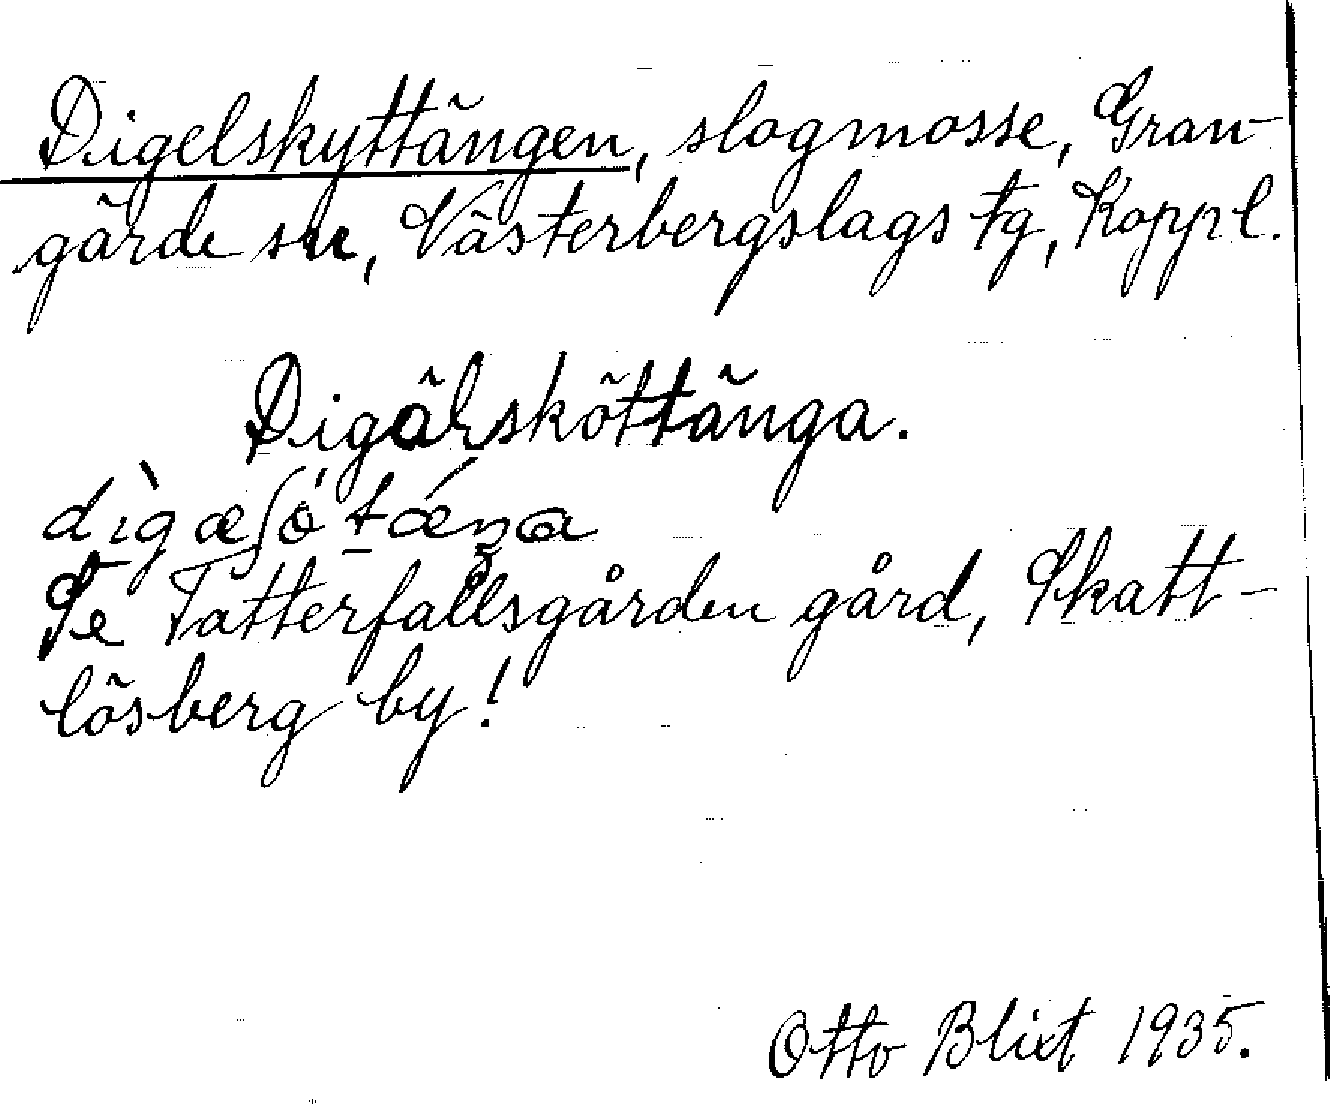 Digelskyttängen, slogmosse, Gran-
gärde sn, Västerbergslags tg, Koppl.
Digälsköttänga.
Se Tatterfallsgården gård, Skatt-
lösberg by!
Otto Blixt 1935.